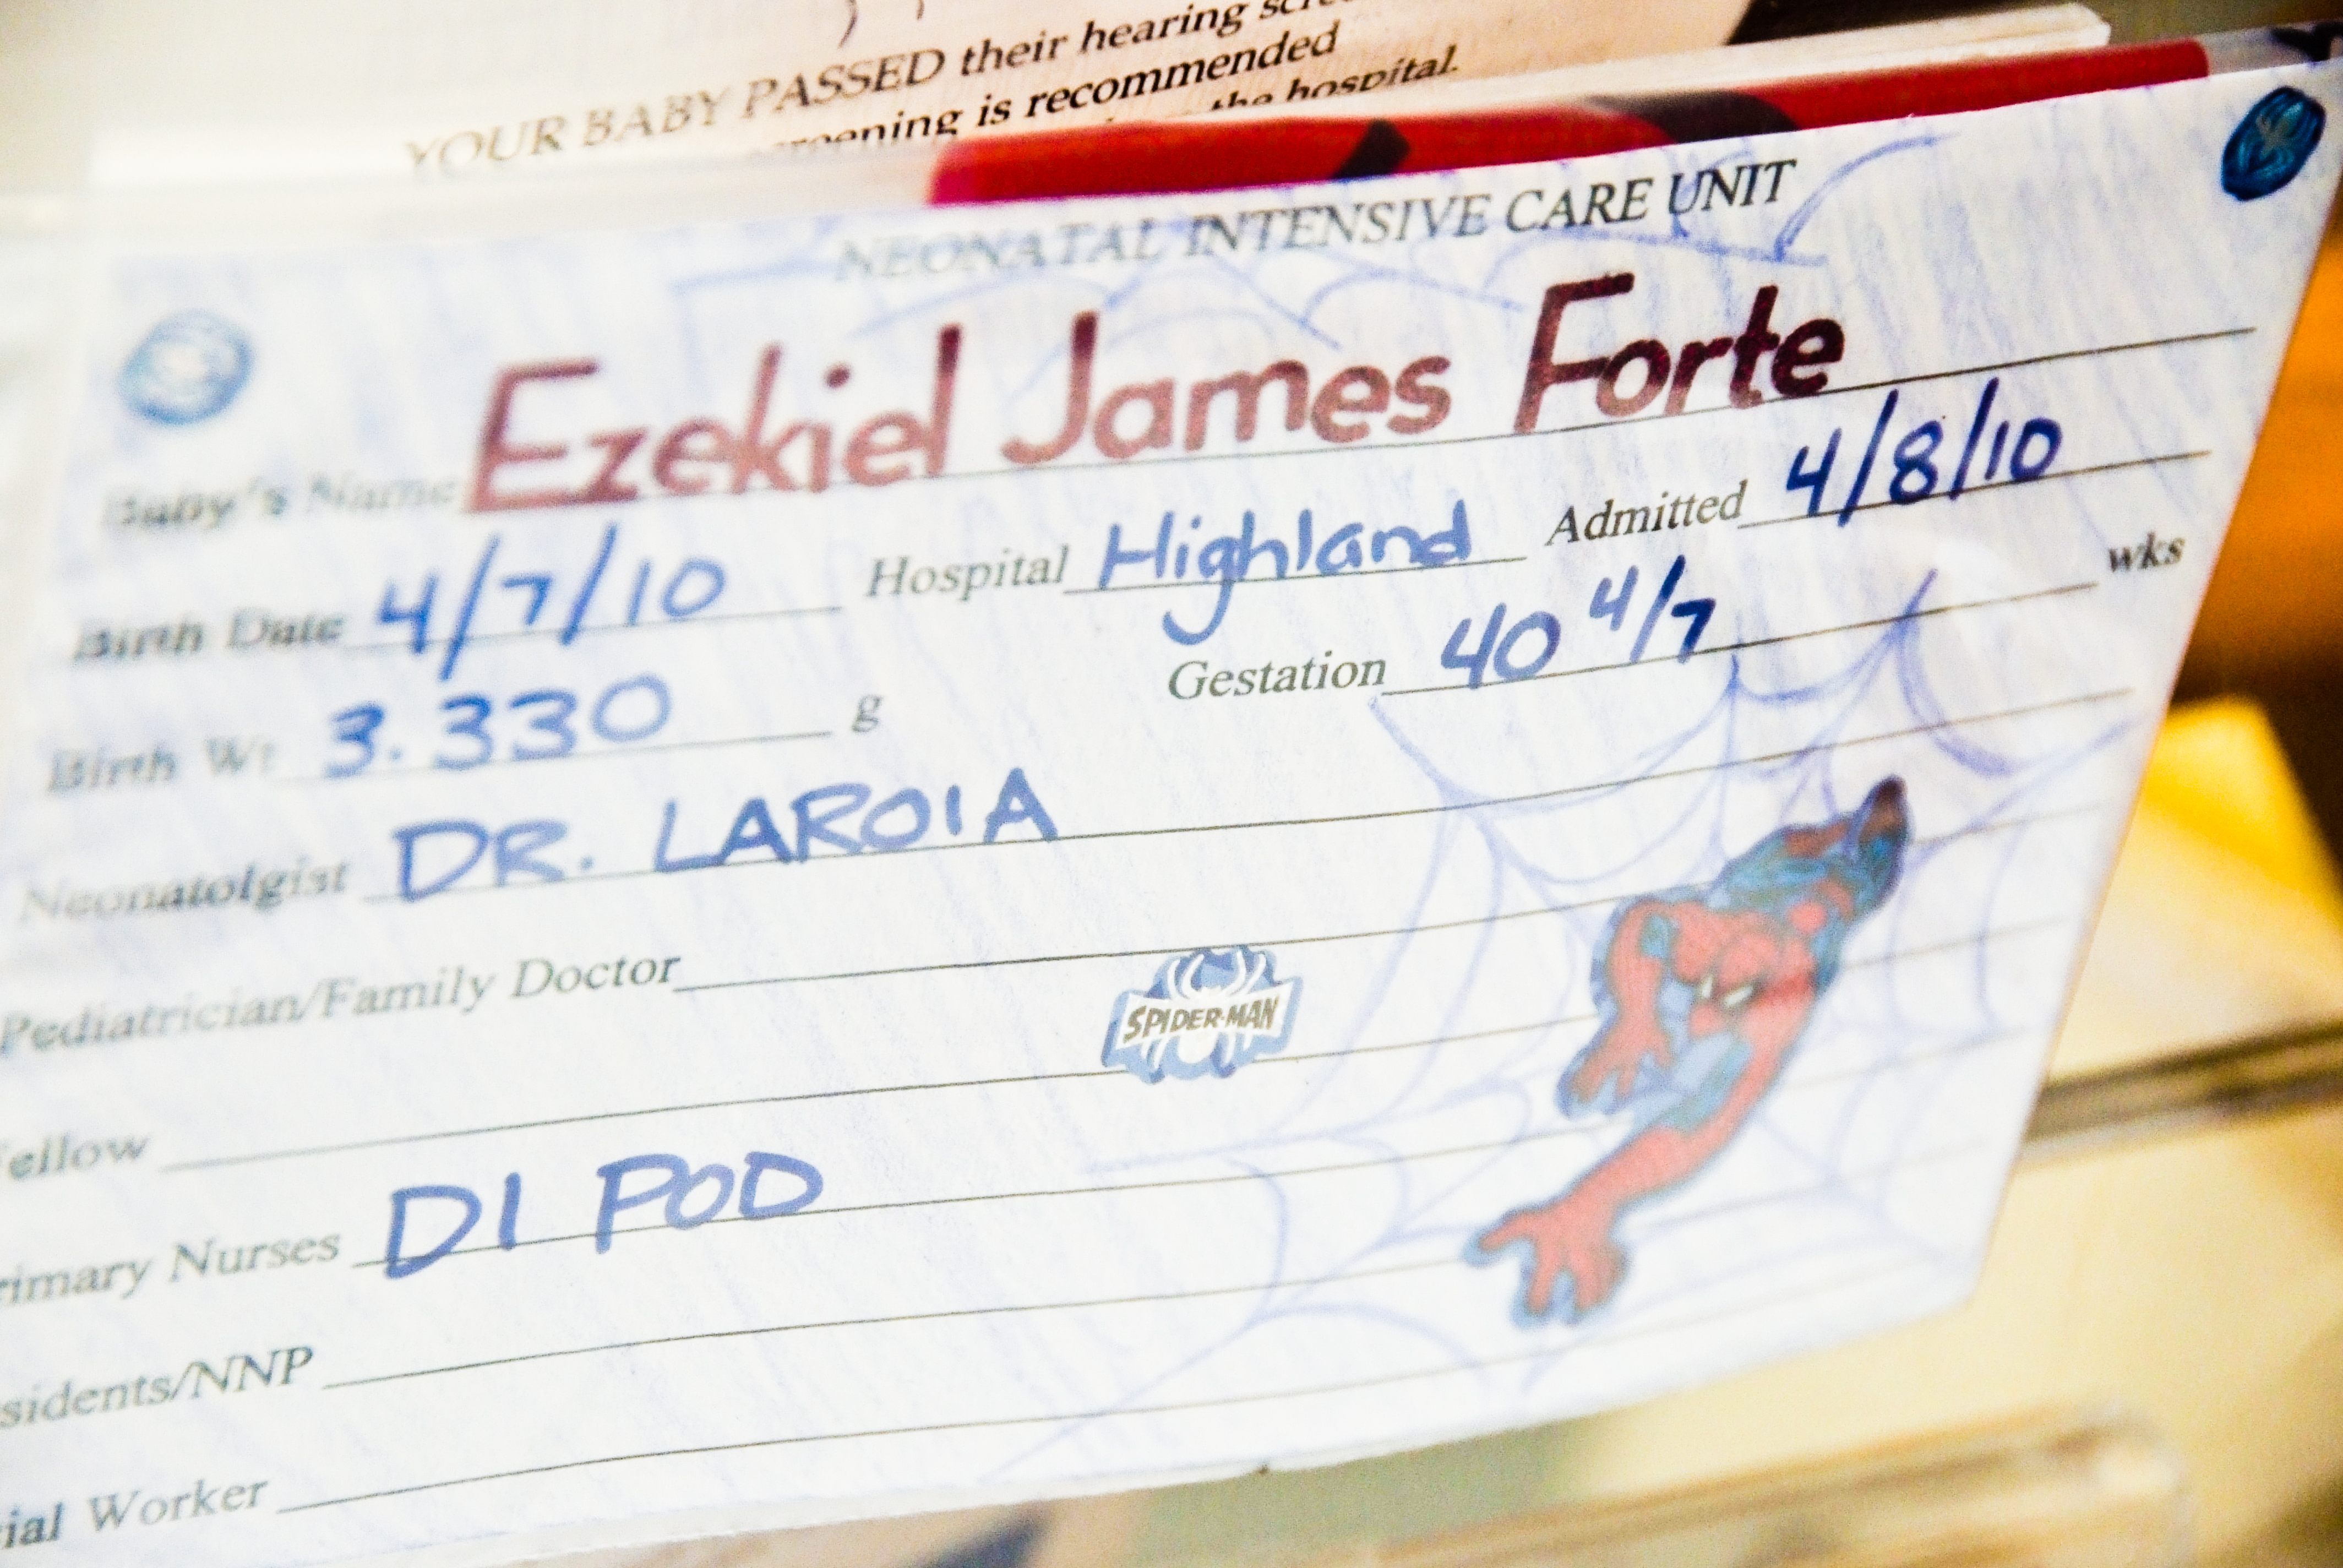 YOUR BABY PASSED their hearing
is recommended
the hospital.
NEONATAL INTENSIVE CARE UNIT
Baby's Name Ezekiel James Forte
Birth Date 4/7/10 Hospital Highland Admitted 4/8/10
Birth Wt 3.330 g Gestation 40 4/7 wks
Neonatolgist DR. LAROIA
Pediatrician/Family Doctor
SPIDER-MAN
ellow
rimary Nurses D1 POD
sidents/NNP
ial Worker